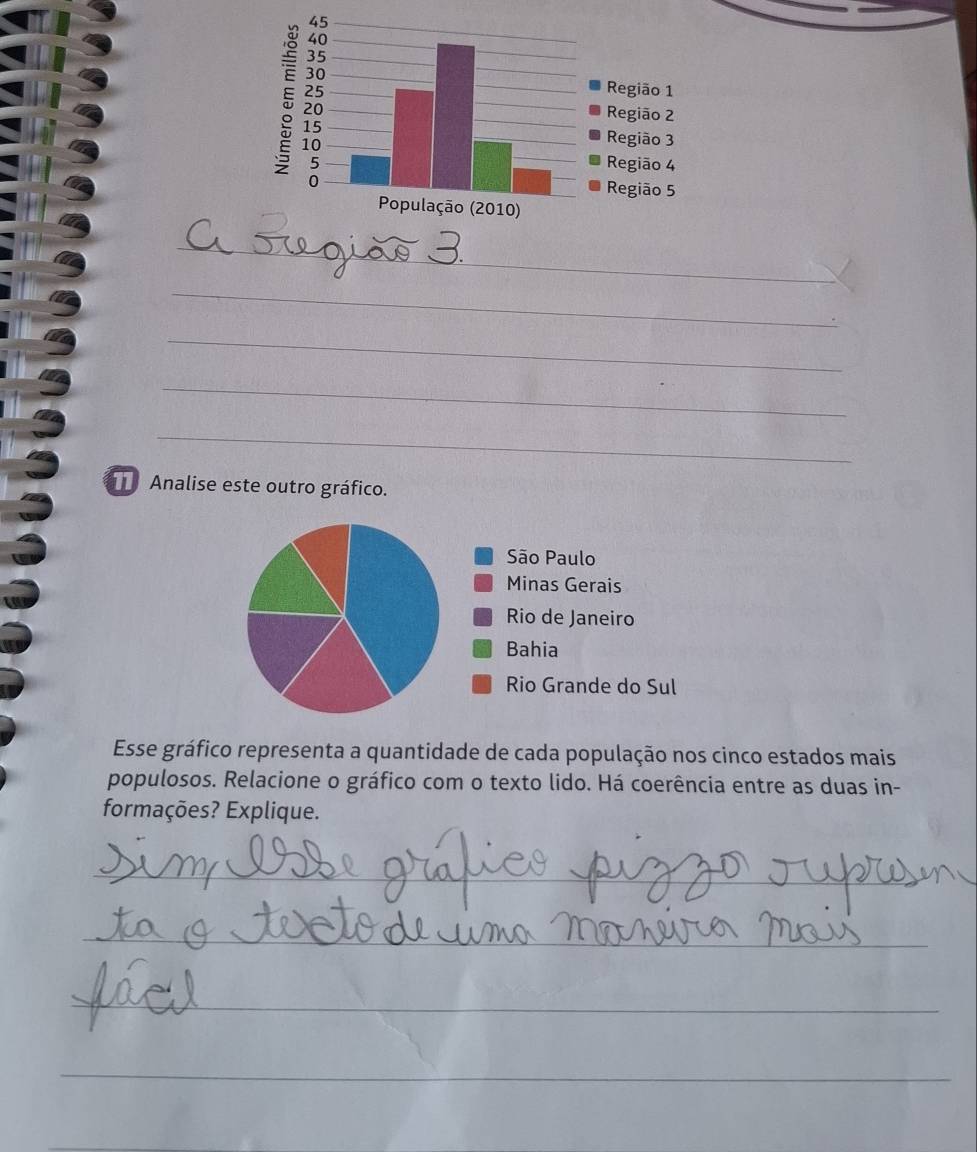 45
40
35
30
25
20
15
10
5
0
Número em milhões
População (2010)
Região 1
Região 2
Região 3
Região 4
Região 5
a região 3.
11 Analise este outro gráfico.
São Paulo
Minas Gerais
Rio de Janeiro
Bahia
Rio Grande do Sul
Esse gráfico representa a quantidade de cada população nos cinco estados mais
populosos. Relacione o gráfico com o texto lido. Há coerência entre as duas in-
formações? Explique.
sim, esse gráfico pizza represen
ta o texto de uma maneira mais
fácil